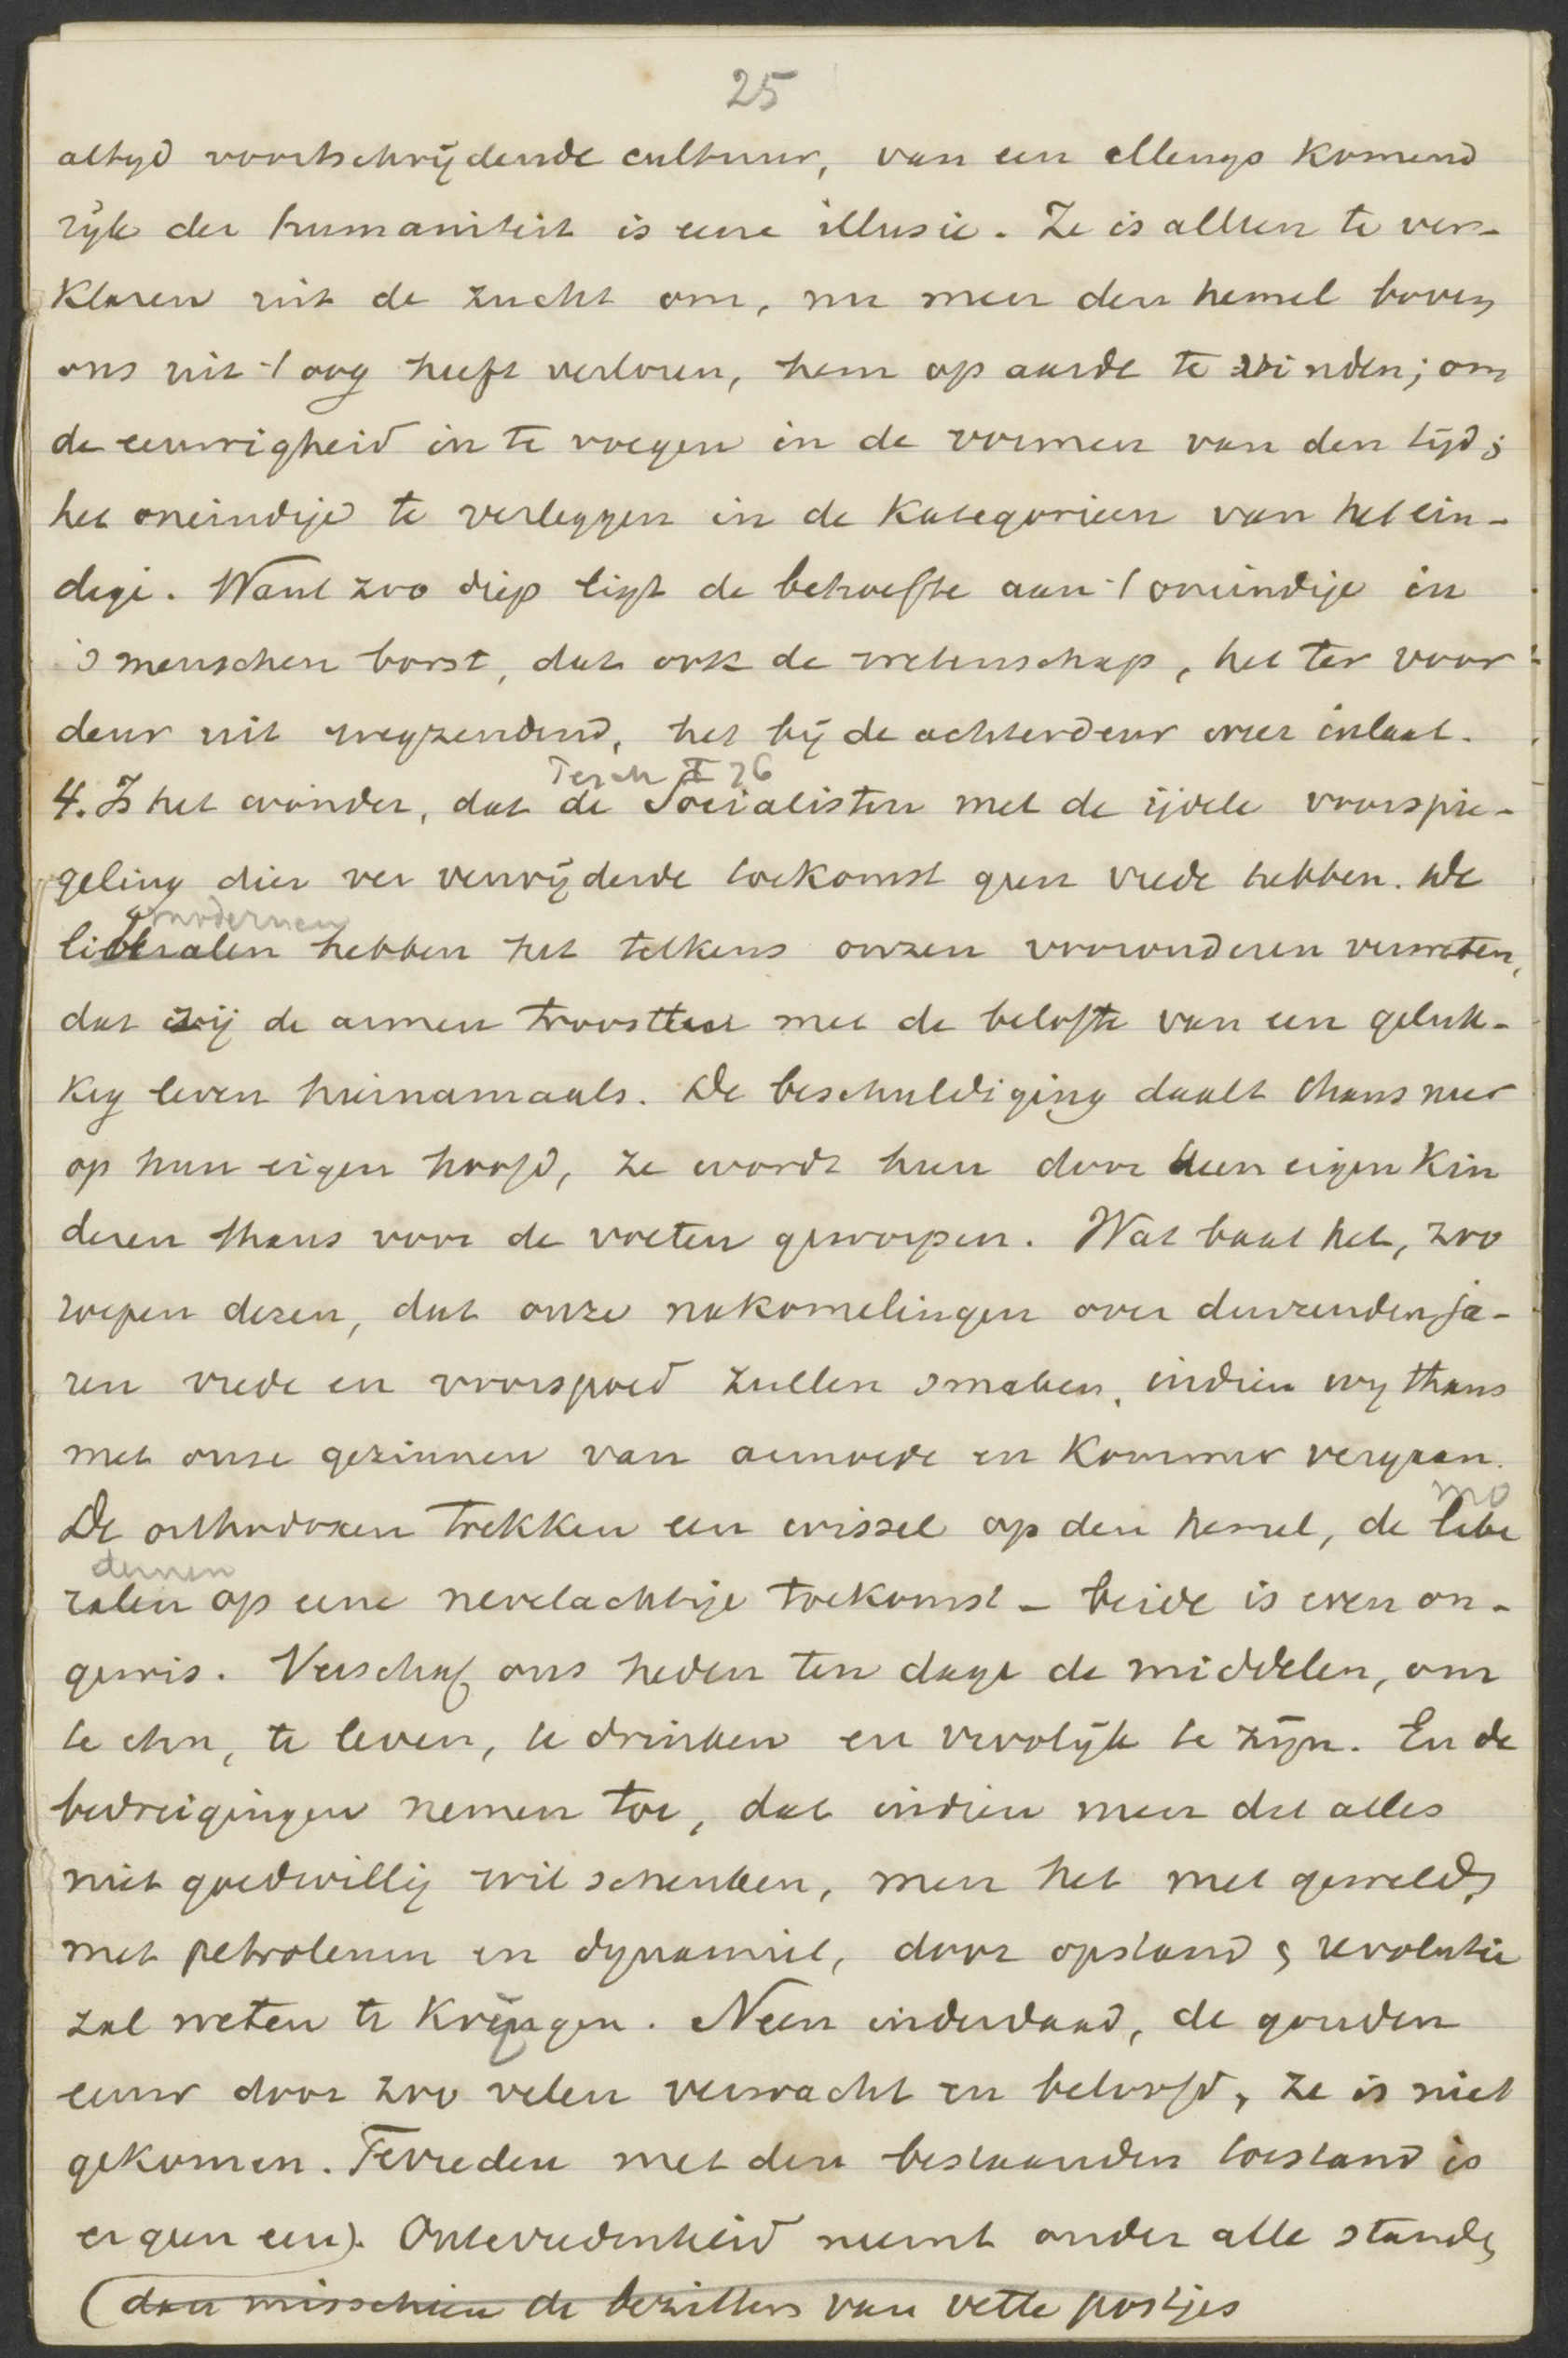 25
altyd voortschrijdende cultuur, van een allengs komend
rijk der humaniteit is eene illusie. Ze is alleen te ver-
klaren uit de zucht om, nu men den hemel boven
ons uit 't oog heeft verloren, hem op aarde te vinden; om
de eeuwigheid in te voegen in de vormen van den tijd;
het oneindige te verleggen in de kategorieen van het ein-
dige. Want zoo diep ligt de behoefte aan 't oneindige in
's menschen borst, dat ook de wetenschap, het ter voor-
deur uit wegzendend, het bij de achterdeur weer inlaat.
Tersch I 26
4. Is het wonder, dat de Socialisten met de ijdele voorspie-
geling dier ver verwijderde toekomst geen vrede hebben. De
modernen
liberalen hebben het telkens onzen vooronderen verweten,
dat zij de armen troostten met de belofte van een geluk-
kig leven hiernamaals. De beschuldiging daalt thans neer
op hun eigen hoofd, ze wordt hun door hun eigen kin
deren thans voor de voeten geworpen. Wat baat het, zoo
roepen dezen, dat onze nakomelingen over duizenden ja-
ren vrede en voorspoed zullen smaken, indien wy thans
met onze gezinnen van armoede en kommer vergaan.
mo
De orthodoxen trekken een wissel op den hemel, de libe
dernen
ralen op eene nevelachtige toekomst - beide is even on-
gewis. Verschaf ons heden ten dage de middelen, om
te eten, te leven, te drinken en vrolijk te zijn. En de
bedreigingen nemen toe, dat indien men dat alles
niet goedwillig wil schenken, men het met geweld,
met petroleum en dynamiet, door opstand & revolutie
zal weten te krijgen. Neen inderdaad, de gouden
eeuw door zoo velen verwacht en beloofd, ze is niet
gekomen. Tevreden met den bestaanden toestand is
er geen een). Ontevredenheid neemt onder alle standen
(dan misschien de bezitters van vette postjes